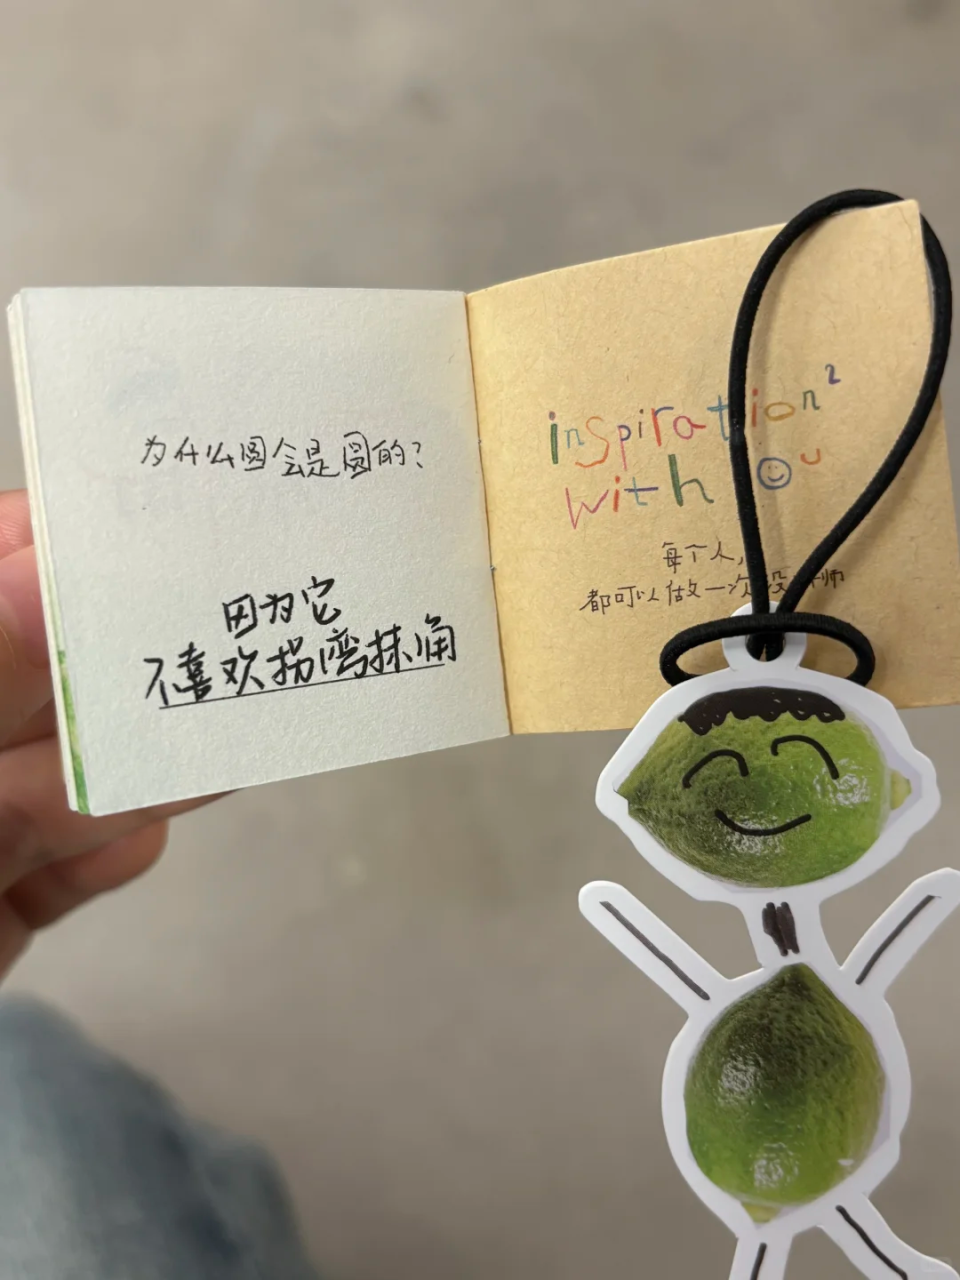 为什么圆会是圆的?
因为它
不喜欢拐弯抹角
inspiration²
with you
每个人,
都可以做一次设计师